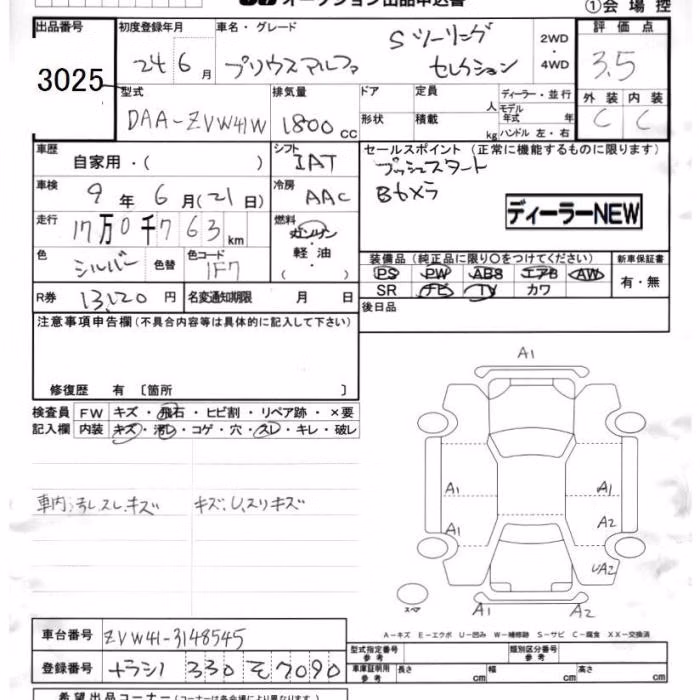 オークション出品申込書
①会場控
出品番号 3025
初度登録年月 24 6月
車名・グレード プリウスアルファ Sツーリングセレクション
2WD・4WD
評価点 3.5
外装 C 内装 C
型式 DAA-ZVW41W
排気量 1800cc
ドア 形状
定員 人 積載 kg
ディーラー・並行
モデル年式 年
ハンドル 左・右
車歴 自家用・( )
シフト IAT
車検 9年6月(21日)
冷房 AAC
走行 17万0千763km
燃料 ガソリン 軽油 ( )
色 シルバー 色替
色コード 1F7
R券 13,120円
名変通知期限 月 日
セールスポイント(正常に機能するものに限ります)
プッシュスタート
Bカメラ
ディーラーNEW
装備品(純正品に限り○をつけてください)
PS PW ABS エアB AW
SR ナビ TV カワ
新車保証書 有・無
後日品
注意事項申告欄(不具合内容等は具体的に記入して下さい)
修復歴 有 〔箇所 〕
検査員記入欄
FW キズ・飛石・ヒビ割・リペア跡・×要
内装 キズ・汚レ・コゲ・穴・スレ・キレ・破レ
車内汚レスレ、キズ キズ、U、スリキズ
A1
A1 A1
A1 A2
UA2
スペア A1 A2
A-キズ E-エクボ U-凹み W-補修跡 S-サビ C-腐食 XX-交換済
車台番号 ZVW41-3148545
登録番号 ナラシ1 330 そ 7090
型式指定番号 参考
類別区分番号 参考
車庫証明用 参考 長さ cm 幅 cm 高さ cm
希望出品コーナー(コーナーは各会場により異なります)